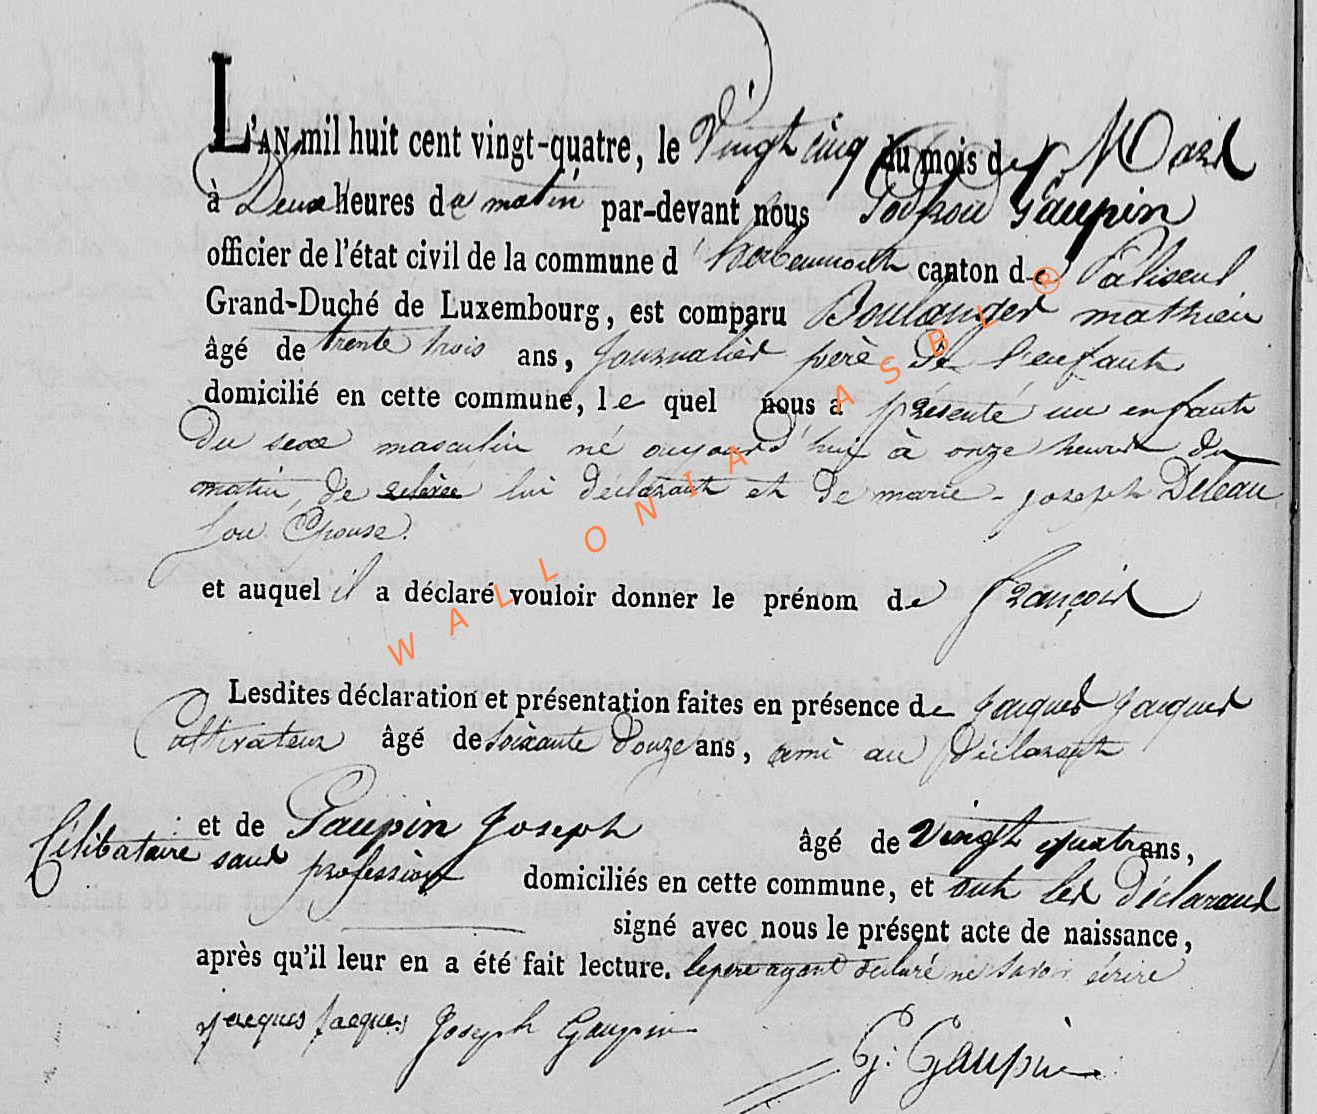 L'AN mil huit cent vingt-quatre, le Vingt cinq du mois de Mars
à Deux heures du matin par-devant nous Gaupin
officier de l'état civil de la commune d'herbeumont canton de Paliseul
Grand-Duché de Luxembourg, est comparu Boulanger mathieu
âgé de trente trois ans, Journalier père de l'enfant
domicilié en cette commune, le quel nous a présenté un enfant
du sexe masculin né aujourd'hui à onze heures du
matin, de lui déclarant et de marie-joseph Deleau
son Epouse.
et auquel il a déclaré vouloir donner le prénom de françois
Lesdites déclaration et présentation faites en présence de Jacques Jacques
Cultivateur âgé de soixante douze ans, ami au déclarant
et de Gaupin Joseph âgé de vingt quatre ans,
Célibataire sans profession domiciliés en cette commune, et ont les déclarans
signé avec nous le présent acte de naissance,
après qu'il leur en a été fait lecture. le père ayant déclaré ne savoir écrire
jacques jacques Joseph Gaupin G: Gaupin
WALLONIA ASBL ®